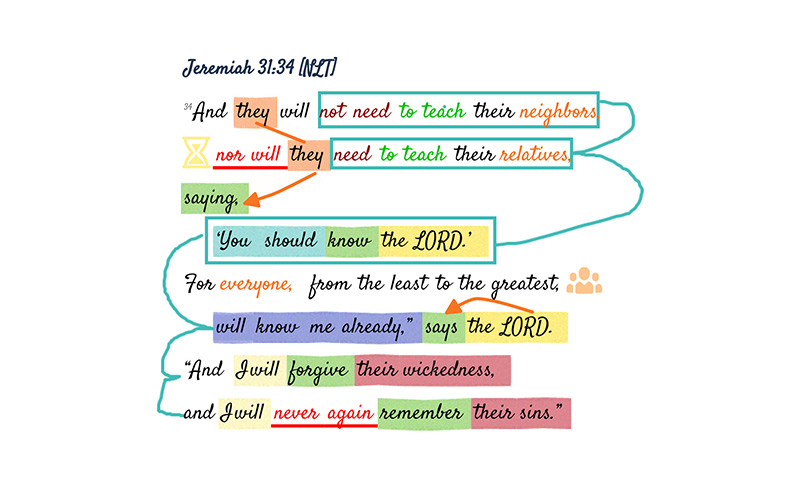 Jeremiah 31:34 [NLT]
34And they will not need to teach their neighbors,
nor will they need to teach their relatives,
saying,
‘You should know the LORD.’
For everyone, from the least to the greatest,
will know me already,” says the LORD.
“And I will forgive their wickedness,
and I will never again remember their sins.”